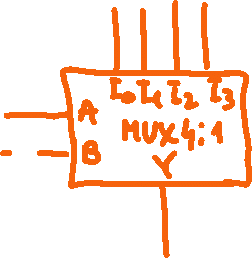 I0 I1 I2 I3
A MUX 4:1
B Y